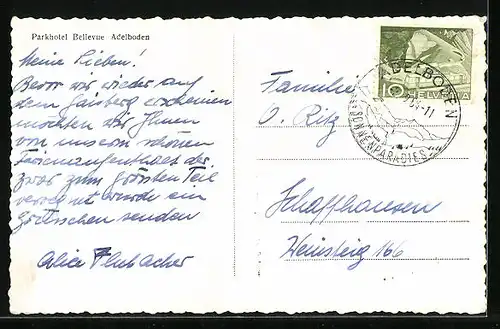 Parkhotel Bellevue Adelboden
Meine Lieben!
Bevor wir wieder auf
dem Gaisberg erscheinen
möchten wir Ihnen
von unserm schönen
Ferienaufenthalt der
zwar zum grössten Teil
verregnet wurde ein
Grüsschen senden
Alice
Familie
O. Ritz
Schaffhausen
Heinsteig 166
10 HELVETIA
ADELBODEN
SONNENPARADIES